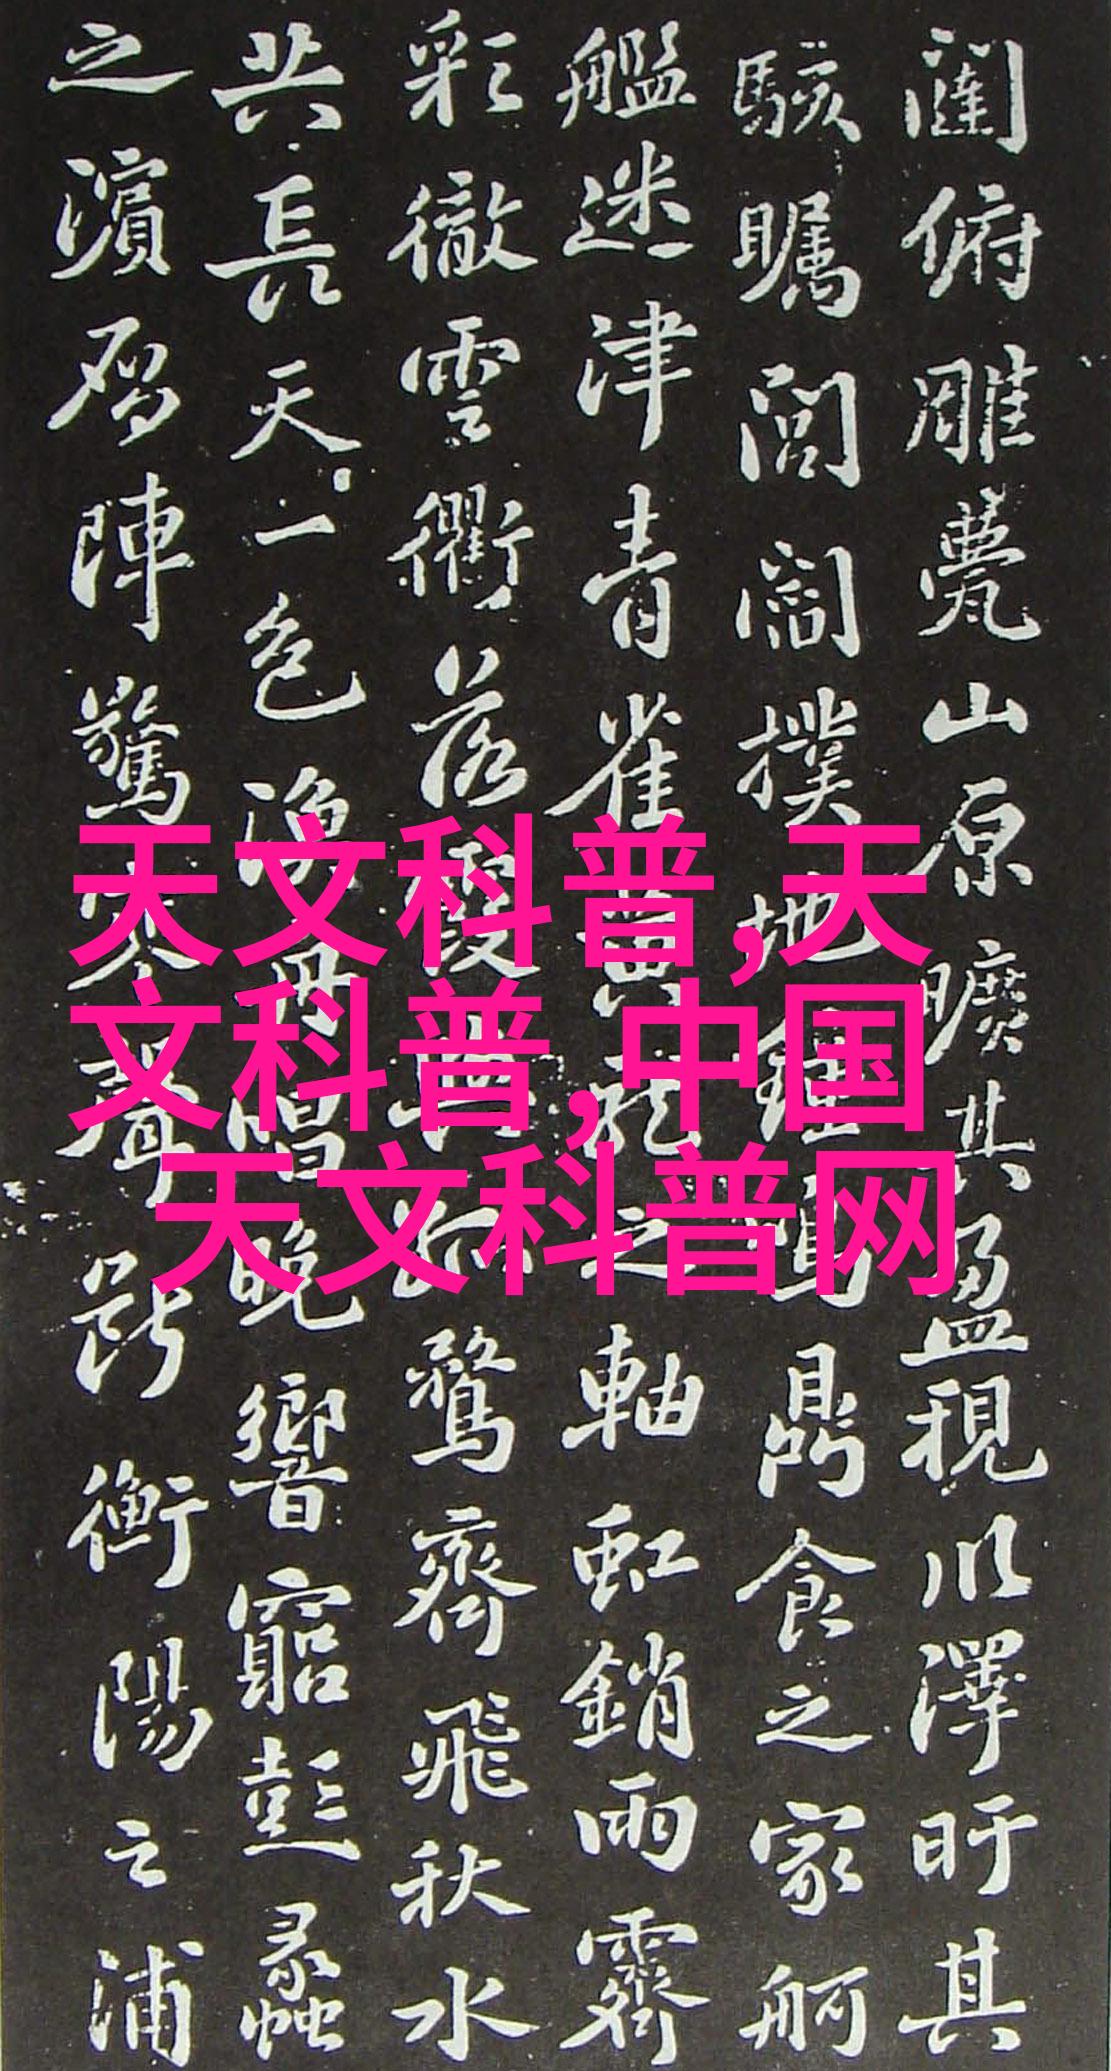 闥俯雕甍山原曠其盈視川澤盱其
駭矚閭閻撲地鍾鳴鼎食之家舸
艦迷津青雀黃龍之軸虹銷雨霽
彩徹雲衢落霞與孤鶩齊飛秋水
共長天一色漁舟唱晚響窮彭蠡
之濱雁陣驚寒聲斷衡陽之浦
天文科普,天
文科普,中国
天文科普网